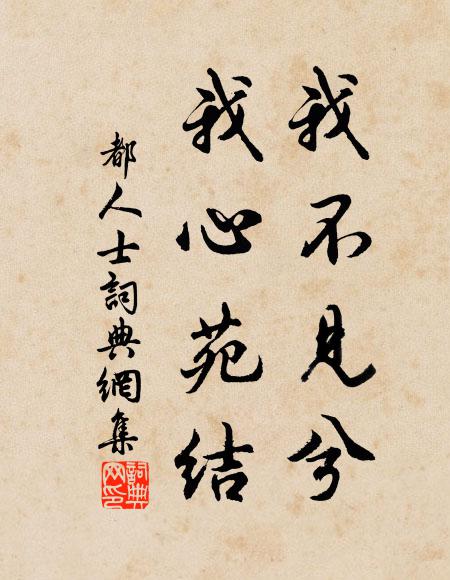 我不见兮
我心苑结
都人士詞典網集
詞典网印